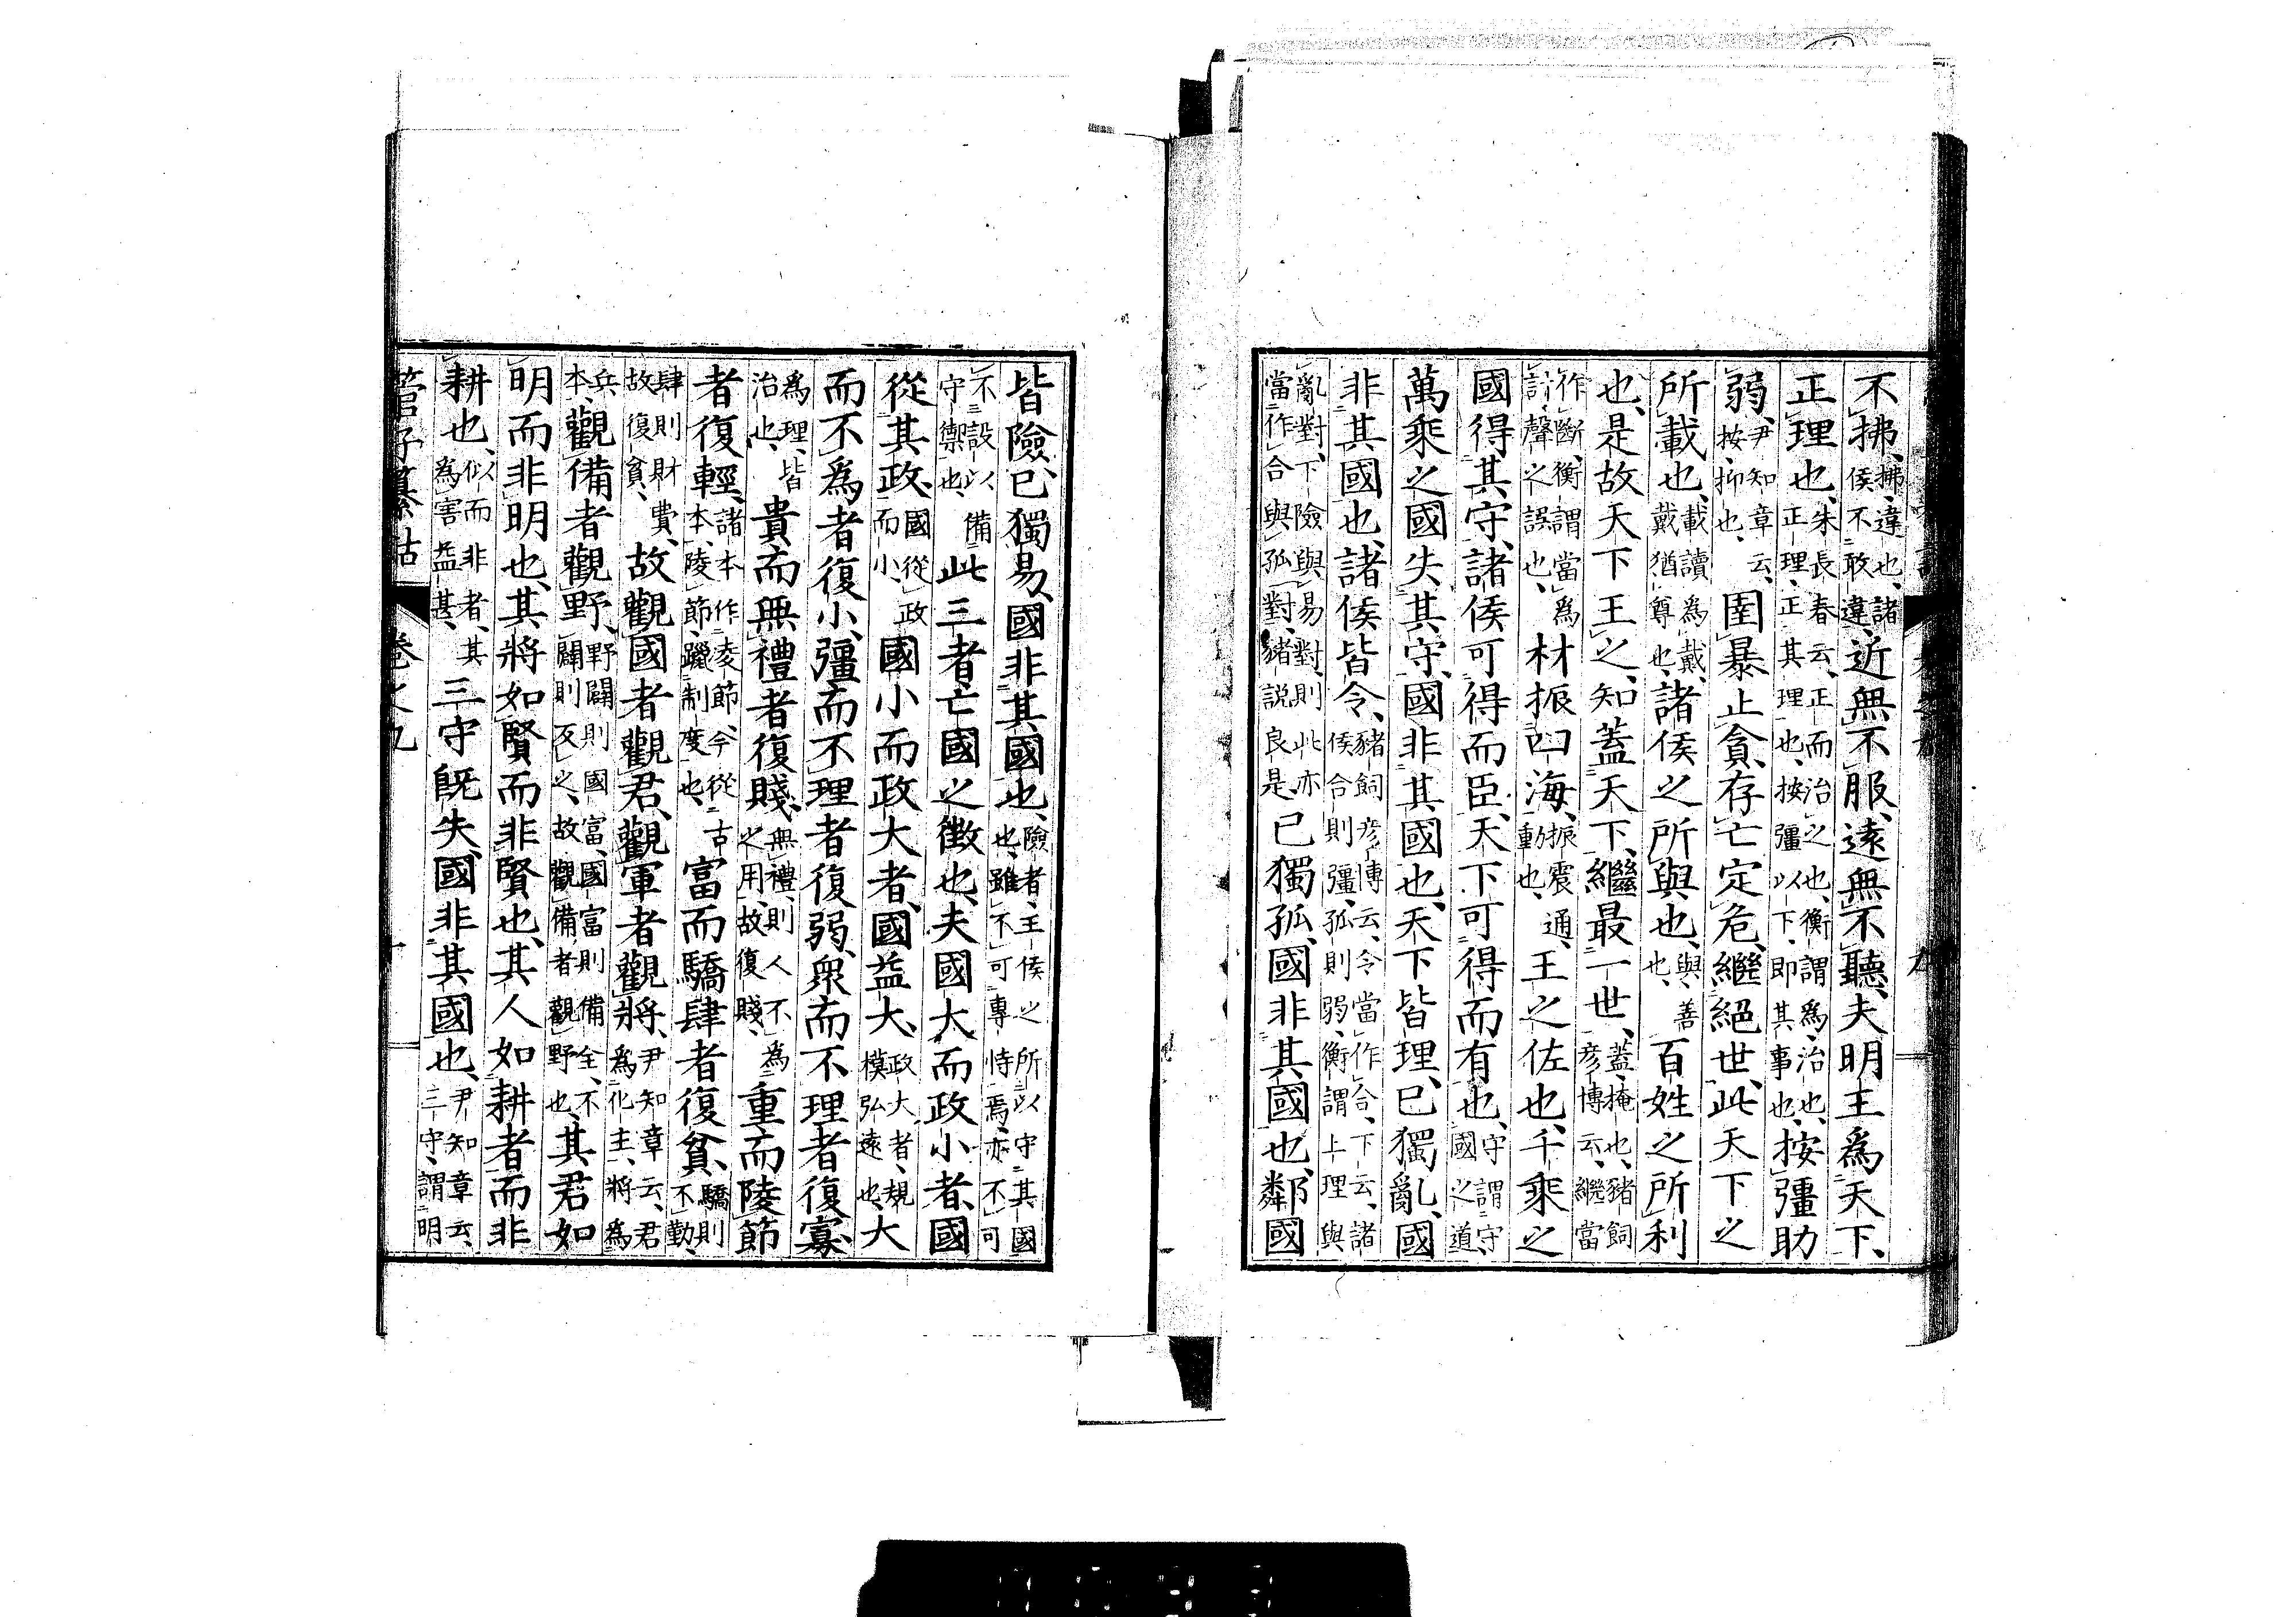 不拂、拂、違也、諸侯不敢違、近無不服、遠無不聽、夫明王為天下、
正理也、朱長春云、正而治之也、衡謂為、治也、正理、正其理也、按彊以下、即其事也、按彊助
弱、尹知章云、按、抑也、圉暴止貪、存亡定危、繼絕世、此天下之
所載也、載讀為戴、戴猶尊也、諸侯之所與也、與、善也、百姓之所利
也、是故天下王之、知蓋天下、繼最一世、蓋、掩也、豬飼彥博云、繼當
作斷、衡謂當為計、聲之誤也、材振四海、振、震動也、通、王之佐也、千乘之
國得其守、諸侯可得而臣、天下可得而有也、守謂守國之道
萬乘之國失其守、國非其國也、天下皆理、已獨亂、國
非其國也、諸侯皆令、豬飼彥博云、令當作合、下云、諸侯合則彊、孤則弱、衡謂上理與
亂對、下險與易對、則此亦當作合與孤對、豬說良是、已獨孤、國非其國也、鄰國
皆險、已獨易、國非其國也、險者、王侯之所以守其國也、雖不可專恃焉、亦不可
不設以備守禦也、此三者、亡國之徵也、夫國大而政小者、國
從其政、國從政而小、國小而政大者、國益大、政大者、規模弘遠也、大
而不為者復小、彊而不理者復弱、眾而不理者復寡、
為理、皆治也、貴而無禮者復賤、無禮、則人不為之用、故復賤、重而陵節
者復輕、諸本作凌節、今從古本、陵節、躐制度也、富而驕肆者復貧、驕則不勤、
肆則財費、故復貧、故觀國者觀君、觀軍者觀將、尹知章云、君為化主、將為
兵本、觀備者觀野、野闢則國富、國富則備全、不闢則反之、故觀備者觀野也、其君如
明而非明也、其將如賢而非賢也、其人如耕者而非
耕也、似而非者、其為害益甚、三守既失、國非其國也、尹知章云、三守、謂明
管子纂詁 卷之九